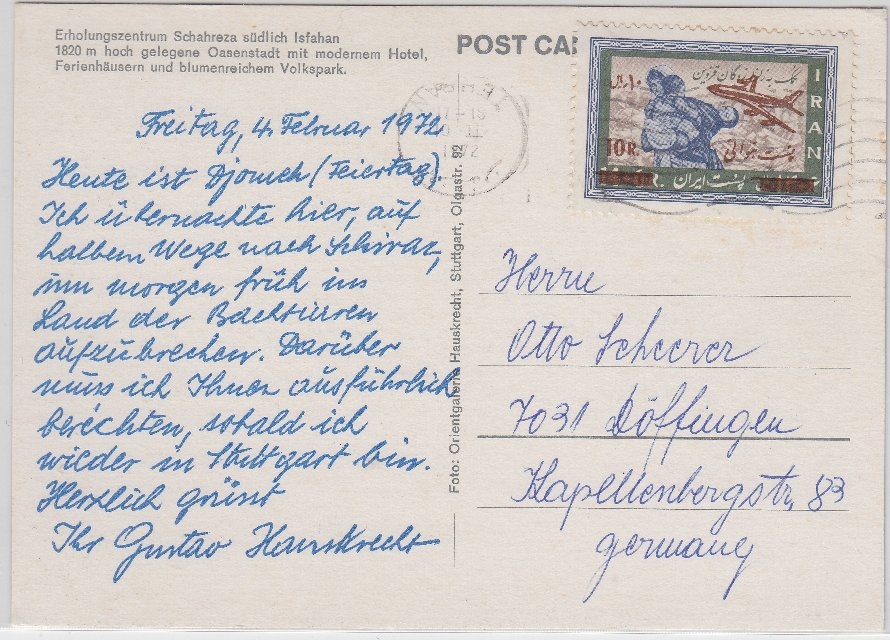 Erholungszentrum Schahreza südlich Isfahan
1820 m hoch gelegene Oasenstadt mit modernem Hotel,
Ferienhäusern und blumenreichem Volkspark.
POST CA
Freitag, 4. Februar 1972
Heute ist Djomeh (Feiertag).
Ich übernachte hier, auf
halbem Wege nach Schiraz,
um morgen früh ins
Land der Bachtiaren
aufzubrechen. Darüber
muss ich Ihnen ausführlich
berichten, sobald ich
wieder in Stuttgart bin.
Herzlich grüsst
Ihr Gustav Hauskrecht
Foto: Orientgalerie Hauskrecht, Stuttgart, Olgastr. 92
IRAN
۱۰ ریال
10R
پست هوائی
پست ایران
Herrn
Otto Scheerer
7031 Döffingen
Kapellenbergstr. 83
Germany